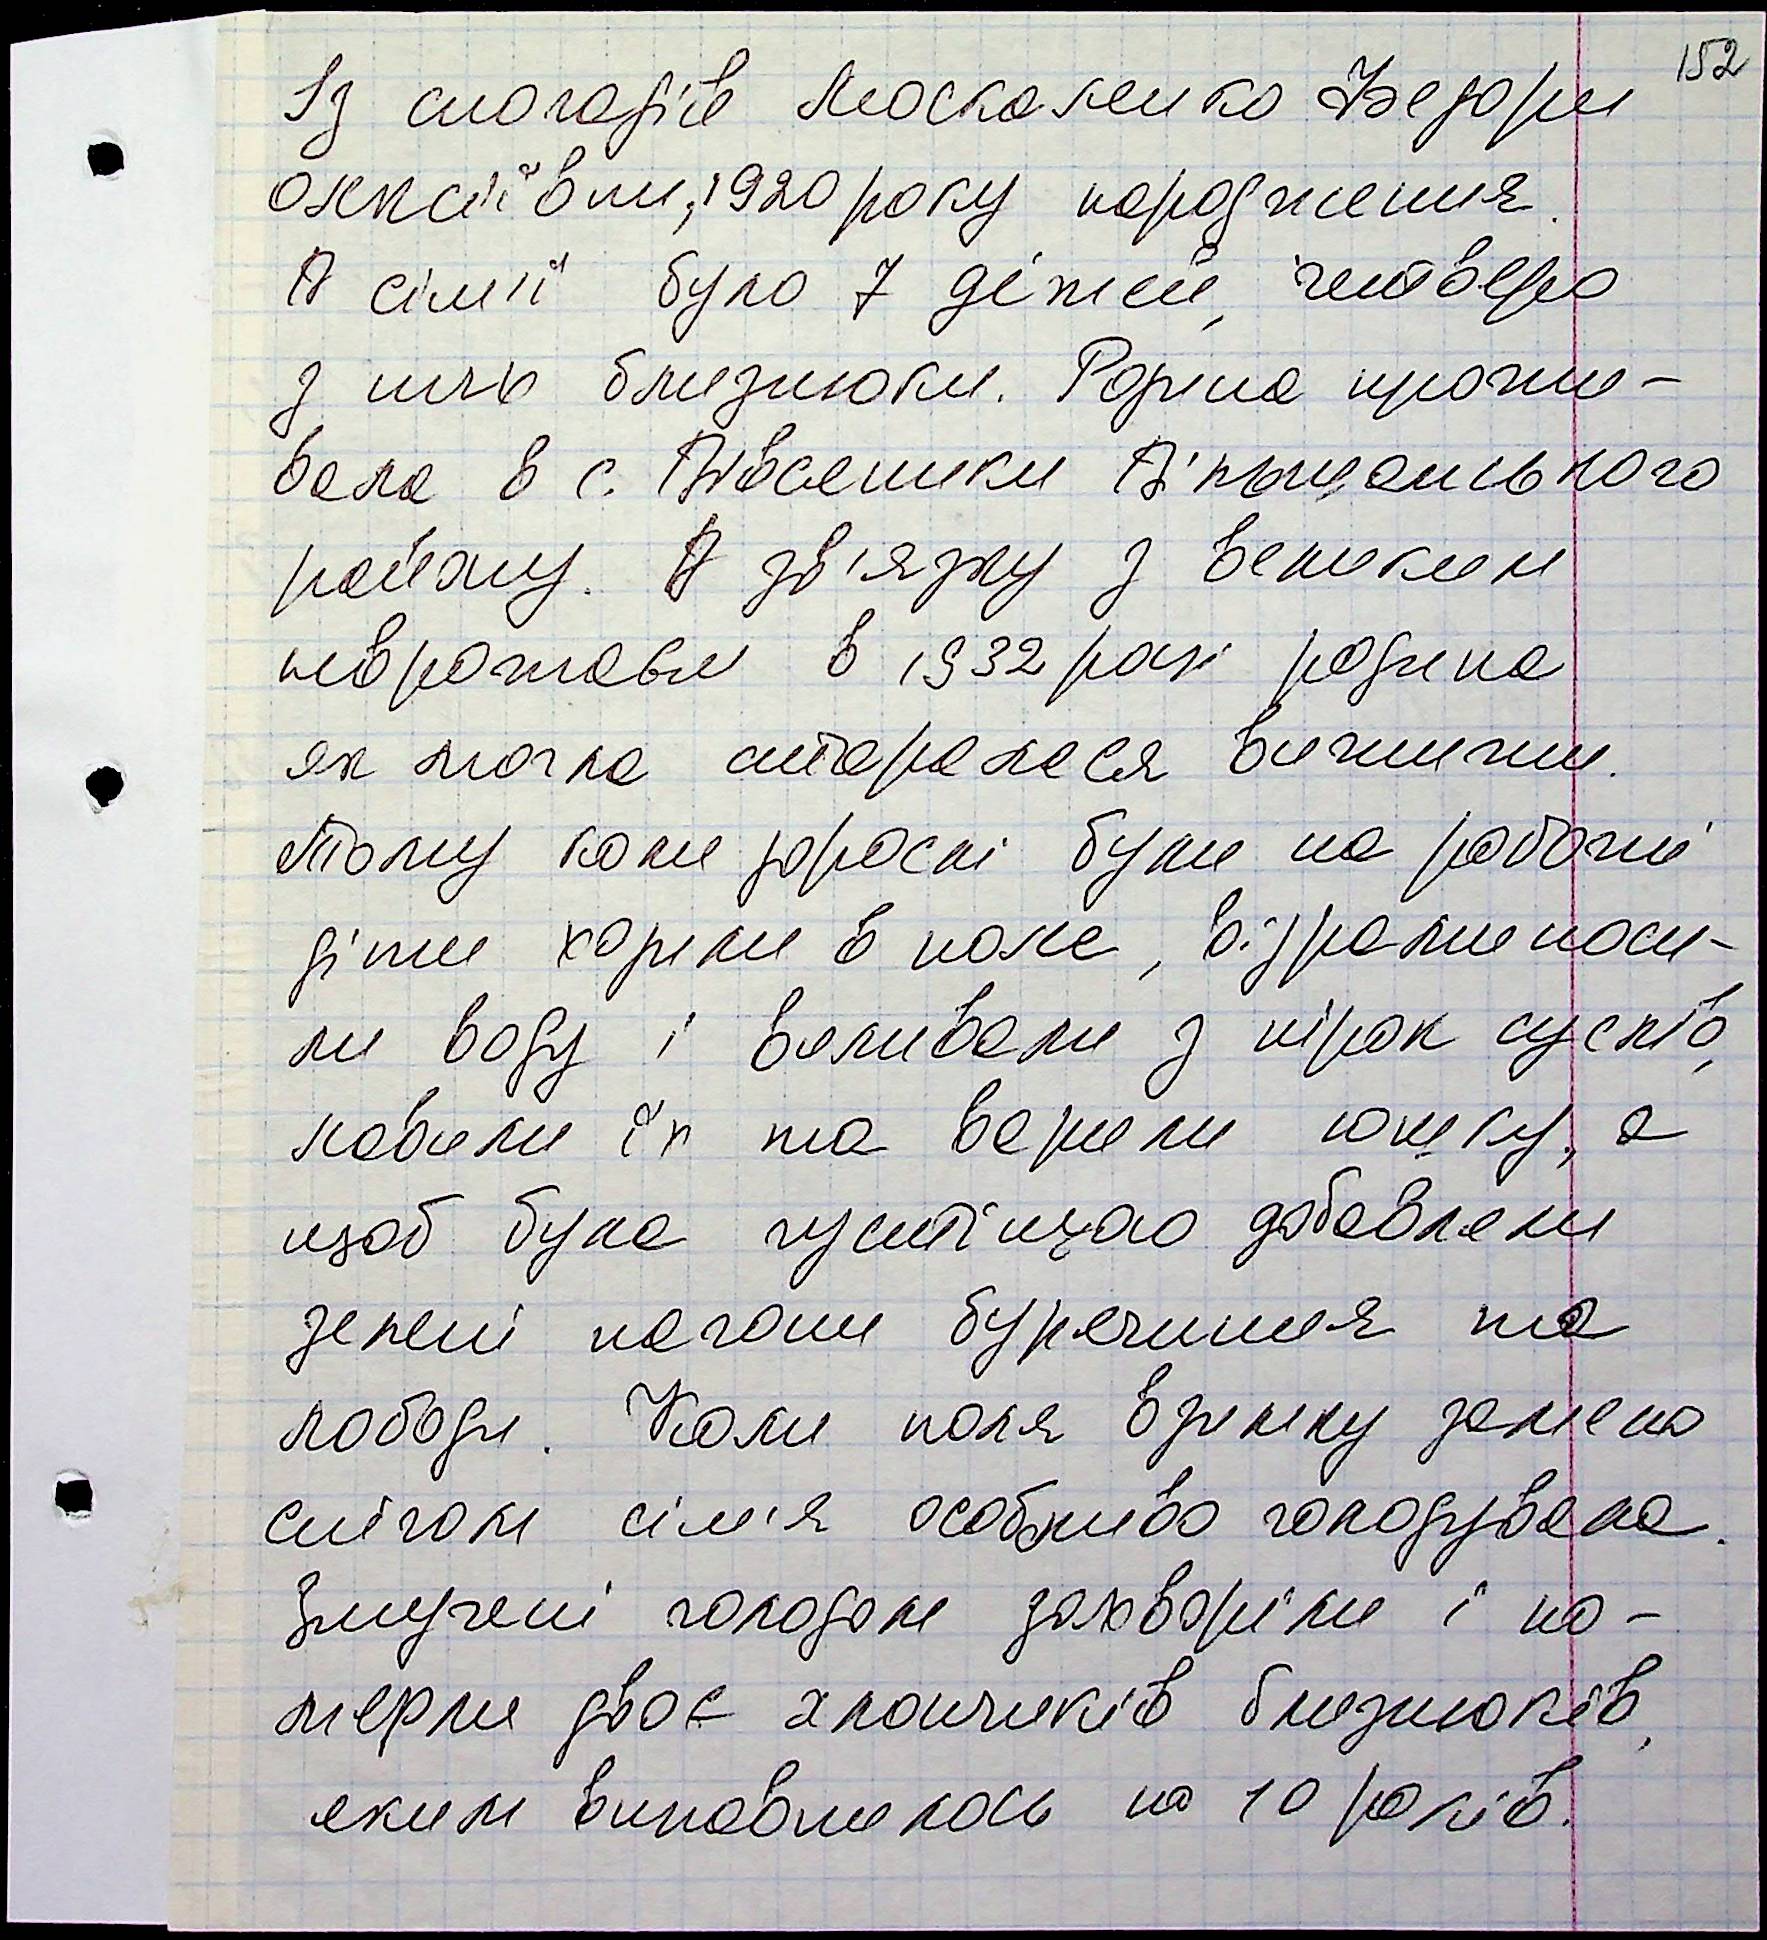 152
Із спогадів Москаленко Федори
Олексіївни, 1920 року народження.
В сім'ї було 7 дітей, четверо
з них близнюки. Родина прожи-
вала в с. Вівсяники Вільшанського
району. В зв'язку з великим
неврожаєм в 1932 році родина
як могла старалася вижити.
Тому коли дорослі були на роботі
діти ходили в поле, відрами носи-
ли воду і виливали з нірок суслів,
ловили їх та варили юшку, а
щоб була густішою добавляли
зелені пагони бурячиння та
лободи. Коли поля взимку замело
снігом сім'я особливо голодувала.
Змучені голодом захворіли і по-
мерли двоє хлопчиків близнюків,
яким виповнилось по 10 років.